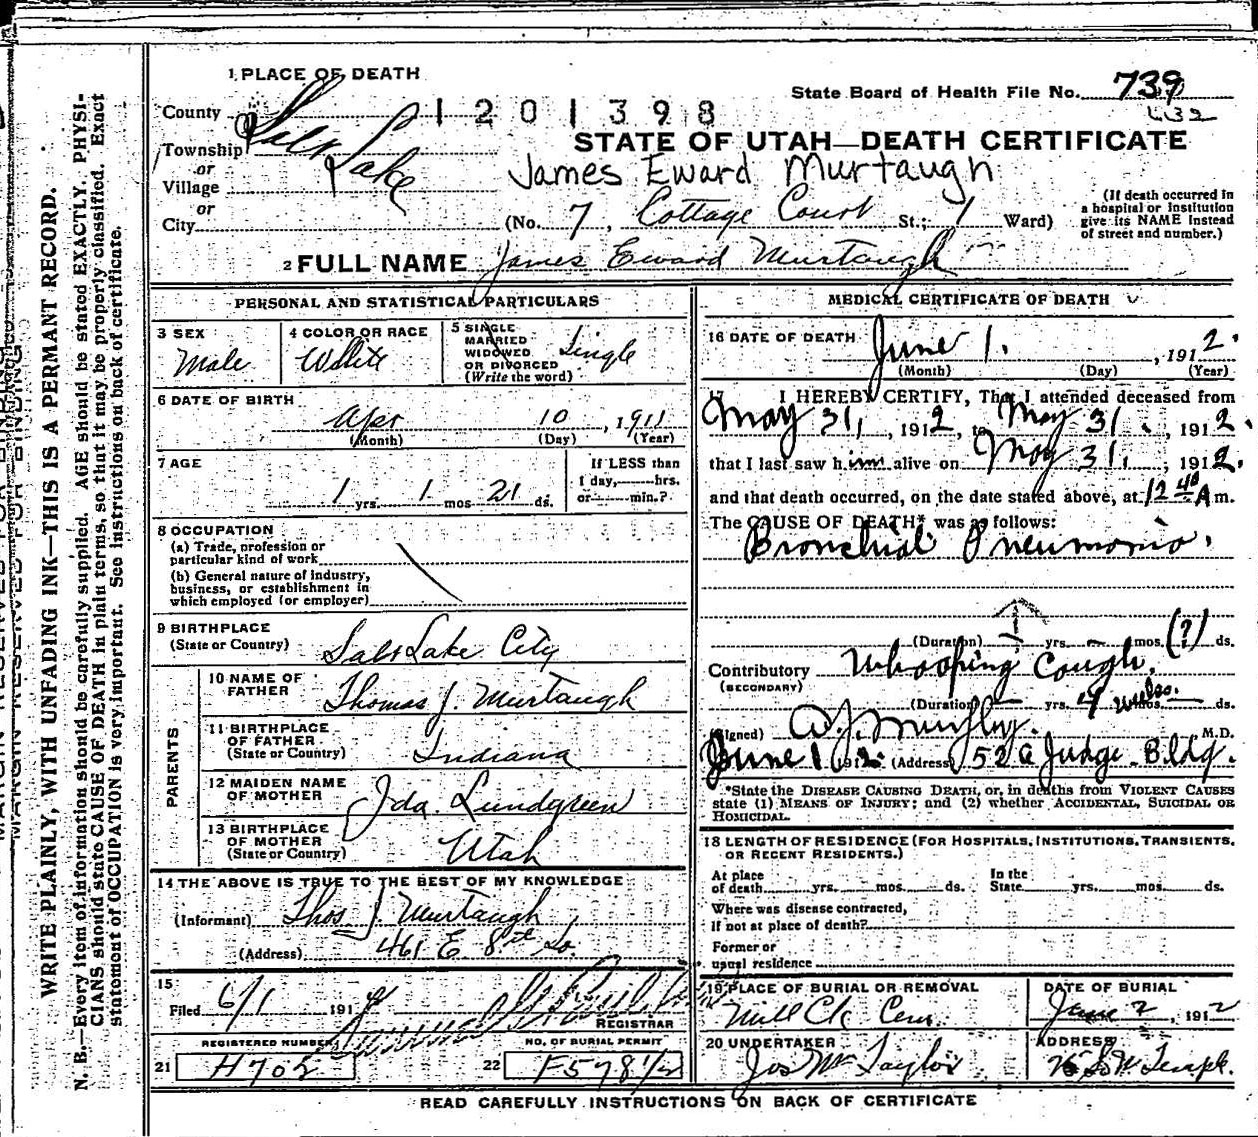 1 PLACE OF DEATH
State Board of Health File No. 739
432
County Salt Lake 1201398
STATE OF UTAH—DEATH CERTIFICATE
Township
or
James Eward Murtaugh
Village
or
City
(No. 7, Cottage Court St.; 1 Ward)
(If death occurred in
a hospital or institution
give its NAME instead
of street and number.)
2 FULL NAME James Eward Murtaugh
PERSONAL AND STATISTICAL PARTICULARS
3 SEX
Male
4 COLOR OR RACE
White
5 SINGLE
MARRIED
WIDOWED
OR DIVORCED
(Write the word)
Single
6 DATE OF BIRTH
Apr 10, 1911
(Month) (Day) (Year)
7 AGE
1 yrs. 1 mos 21 ds.
If LESS than
1 day, hrs.
or min.?
8 OCCUPATION
(a) Trade, profession or
particular kind of work
(b) General nature of industry,
business, or establishment in
which employed (or employer)
9 BIRTHPLACE
(State or Country) Salt Lake City
PARENTS
10 NAME OF
FATHER Thomas J. Murtaugh
11 BIRTHPLACE
OF FATHER
(State or Country) Indiana
12 MAIDEN NAME
OF MOTHER Ida Lundgreen
13 BIRTHPLACE
OF MOTHER
(State or Country) Utah
14 THE ABOVE IS TRUE TO THE BEST OF MY KNOWLEDGE
(Informant) Thos J. Murtaugh
(Address) 461 E 8th So.
15
Filed 6/1 191
REGISTRAR
REGISTERED NUMBER
21 H702
NO. OF BURIAL PERMIT
22 F578 1/2
MEDICAL CERTIFICATE OF DEATH
16 DATE OF DEATH
June 1. , 1912.
(Month) (Day) (Year)
17 I HEREBY CERTIFY, That I attended deceased from
May 31, , 1912, to May 31. , 1912.
that I last saw him alive on May 31, , 1912.
and that death occurred, on the date stated above, at 12 40 A m.
The CAUSE OF DEATH* was as follows:
Bronchial Pneumonia.
(Duration) — yrs. — mos. (?) ds.
Contributory Whooping Cough.
(SECONDARY)
(Duration) — yrs. 4 wks. mos. — ds.
(Signed) A. J. Murphy. M.D.
June 1 1912. (Address) 526 Judge Bldg.
*State the DISEASE CAUSING DEATH, or, in deaths from VIOLENT CAUSES
state (1) MEANS OF INJURY; and (2) whether ACCIDENTAL, SUICIDAL OR
HOMICIDAL.
18 LENGTH OF RESIDENCE (FOR HOSPITALS, INSTITUTIONS, TRANSIENTS,
OR RECENT RESIDENTS.)
At place
of death yrs. mos. ds.
In the
State yrs. mos. ds.
Where was disease contracted,
If not at place of death?
Former or
usual residence
19 PLACE OF BURIAL OR REMOVAL
Mill Ck Cem.
DATE OF BURIAL
June 2, 1912
20 UNDERTAKER
Jos Wm Taylor
ADDRESS
S W Temple.
READ CAREFULLY INSTRUCTIONS ON BACK OF CERTIFICATE
WRITE PLAINLY, WITH UNFADING INK—THIS IS A PERMANT RECORD.
N. B.—Every item of information should be carefully supplied. AGE should be stated EXACTLY. PHYSI-
CIANS should state CAUSE OF DEATH in plain terms, so that it may be properly classified. Exact
statement of OCCUPATION is very important. See instructions on back of certificate.
MARGIN RESERVED FOR BINDING